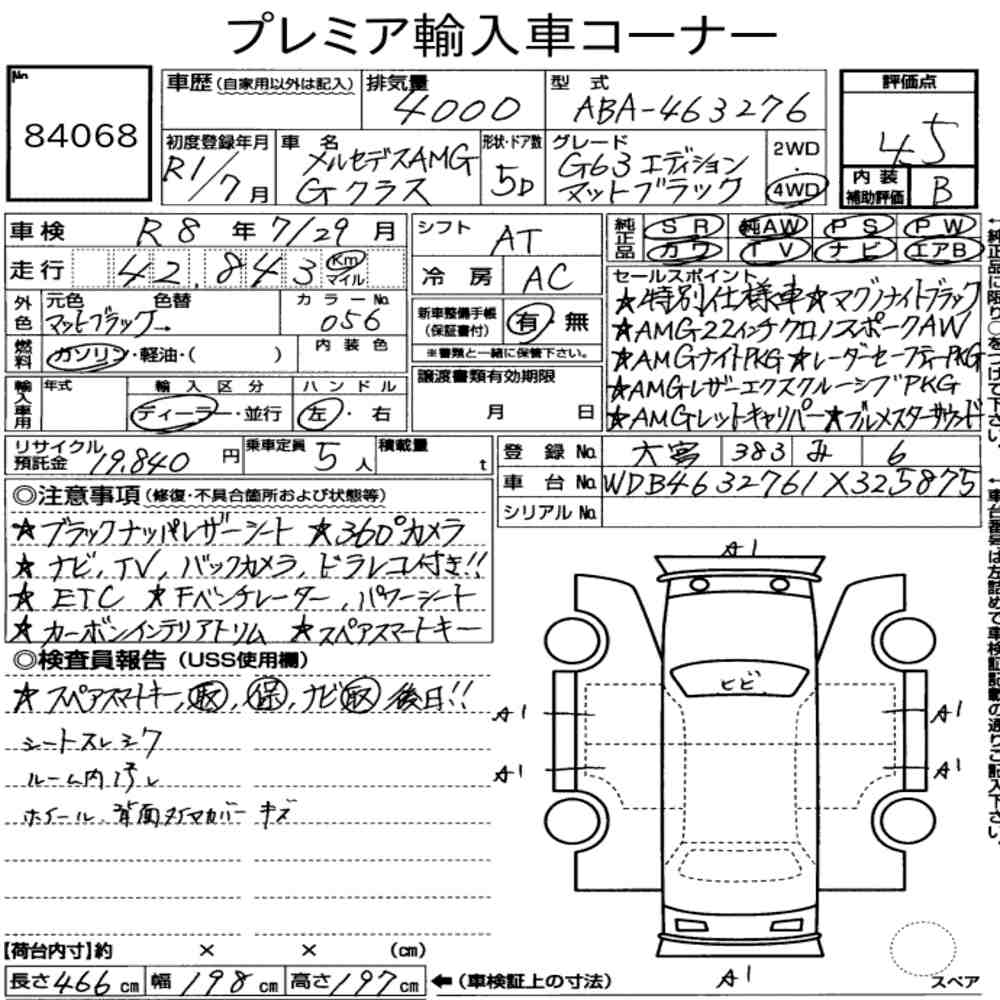 プレミア輸入車コーナー
No.
84068
車歴(自家用以外は記入)
排気量 4000
型式 ABA-463276
評価点 4.5
初度登録年月 R1/7月
車名 メルセデスAMG
Gクラス
形状・ドア数 5D
グレード G63 エディション
マットブラック
2WD
・
4WD
内装
補助評価 B
車検 R8年7/29月
走行 42,843 Km
マイル
シフト AT
冷房 AC
純正品 SR 純AW PS PW
カワ TV ナビ エアB
外色 元色 色替
マットブラック→
カラーNo. 056
燃料 ガソリン・軽油・( )
内装色
新車整備手帳
(保証書付) 有・無
※書類と一緒に保管下さい。
セールスポイント
★特別仕様車★マグノナイトブラック
★AMG22インチクロノスポークAW
★AMGナイトPKG★レーダーセーフティーPKG
★AMGレザーエクスクルーシブPKG
★AMGレットキャリパー★ブルメスターサウンド
輸入車用 年式
輸入区分 ディーラー・並行
ハンドル 左・右
譲渡書類有効期限
月 日
リサイクル
預託金 19,840円
乗車定員 5人
積載量 t
登録No. 大宮 383 み 6
車台No. WDB4632761X325875
シリアルNo.
◎注意事項(修復・不具合箇所および状態等)
★ブラックナッパレザーシート ★360°カメラ
★ナビ、TV、バックカメラ、ドラレコ付き!!
★ETC ★Fベンチレーター、パワーシート
★カーボンインテリアトリム ★スペアスマートキー
◎検査員報告(USS使用欄)
★スペアスマートキー、取、保、ナビ取 後日!!
シートスレシワ
ルーム内汚レ
ホイール、背面タイヤカバー キズ
A1
ヒビ
A1
A1
A1
A1
A1
スペア
【荷台内寸】約 × × (cm)
長さ466cm 幅198cm 高さ197cm
←(車検証上の寸法)
←純正品に限り○をつけて下さい。
←車台番号は左詰めで車検証記載の通りご記入下さい。